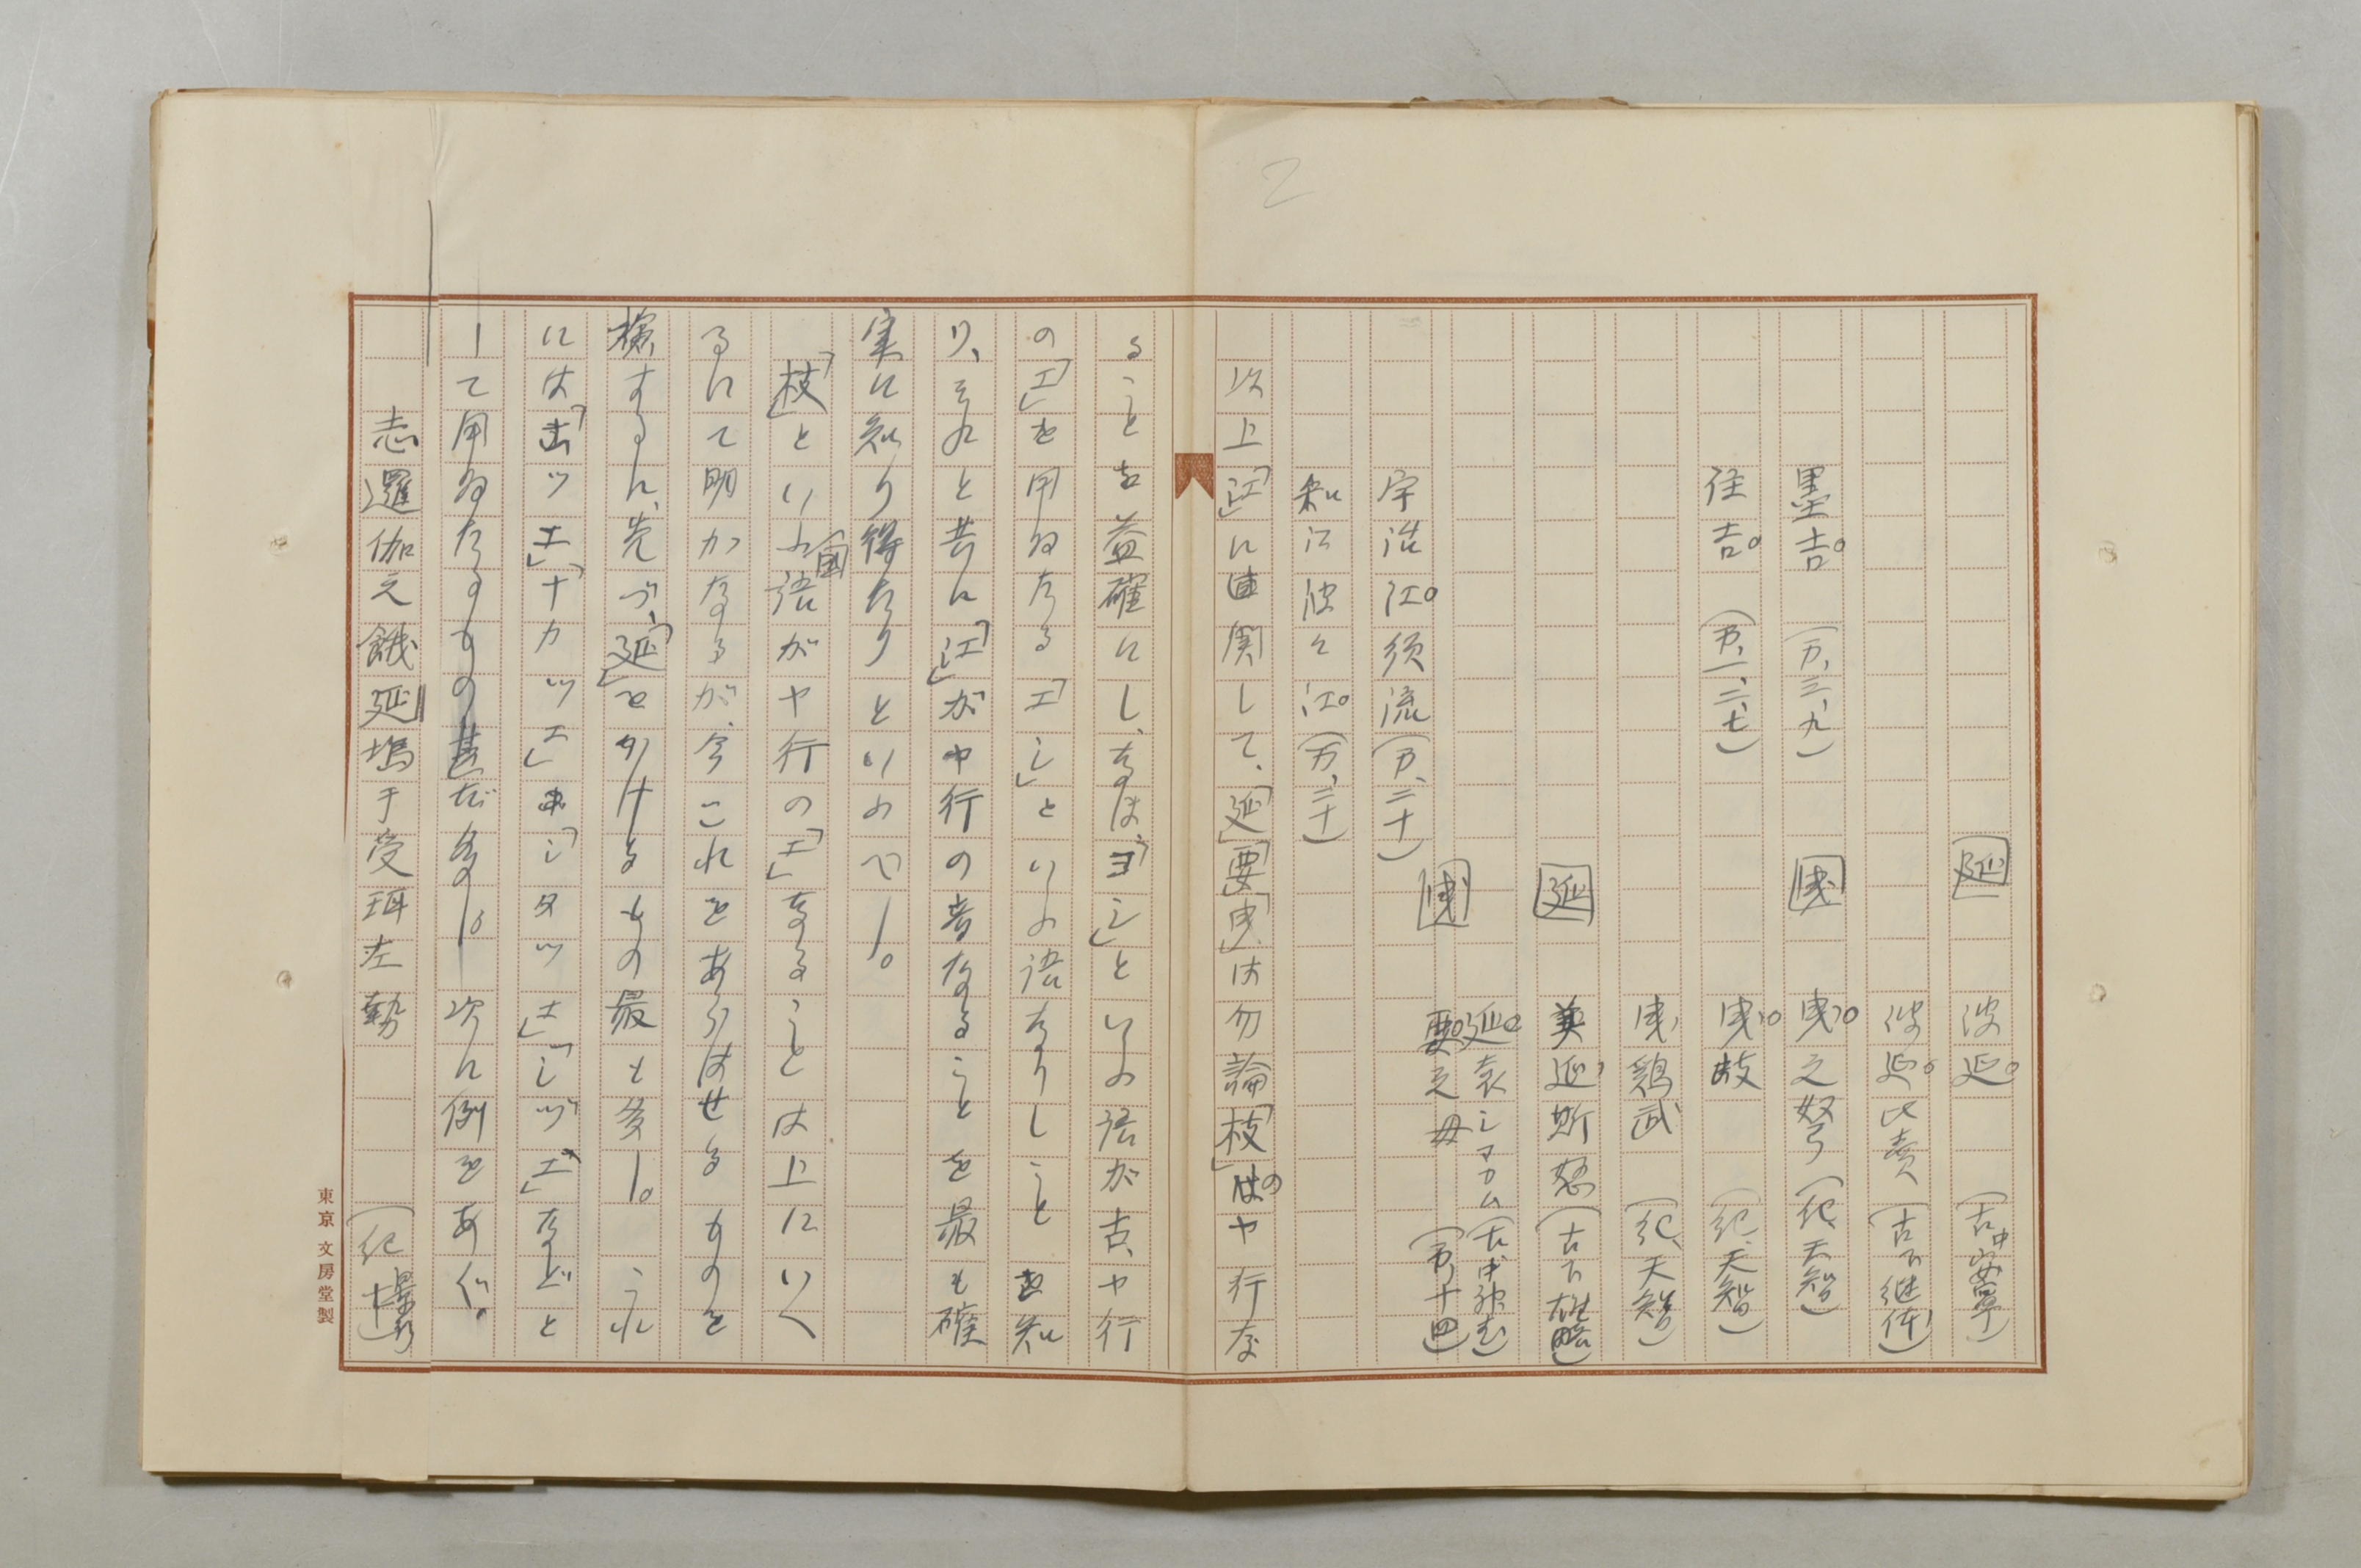 2
延 波延 (古中安寧)
波延比売 (古下継体)
墨吉 (万、三、九) 曳 曳之弩弓 (紀、天智)
住吉 (万、一、二、七) 曳岐 (紀、天智)
曳鶏武 (紀、天智)
延 美延斯怒 (古下雄略)
延袁シマカム (古中神武)
宇治江須流 (万、二十) 曳 要之母 (万、十四)
和江波々江 (万、二十)
以上「江」に関して、「延」「要」「曳」は勿論「枝」のヤ行な
ることを益確にし、なほ、「ヨシ」といふ語が古、ヤ行
の「エ」を用ゐたる「エシ」といふ語なりしことを知
り、それと共に「江」がヤ行の音なることを最も確
実に知り得たりといふべし。
「枝」といふ国語がヤ行の「エ」なることは上にいへ
るにて明かなるが、今これをあらはせるものを
検するに、先づ、「延」をかけるもの最も多し。これ
には「出ツエ」「ナカツエ」「シタツエ」「シヅエ」などと
して用ゐたるもの甚だ多し。次に例をあぐ。
志邏伽之餓延塢于受珥左勢 (紀 景行 十七)
東京 文房堂製